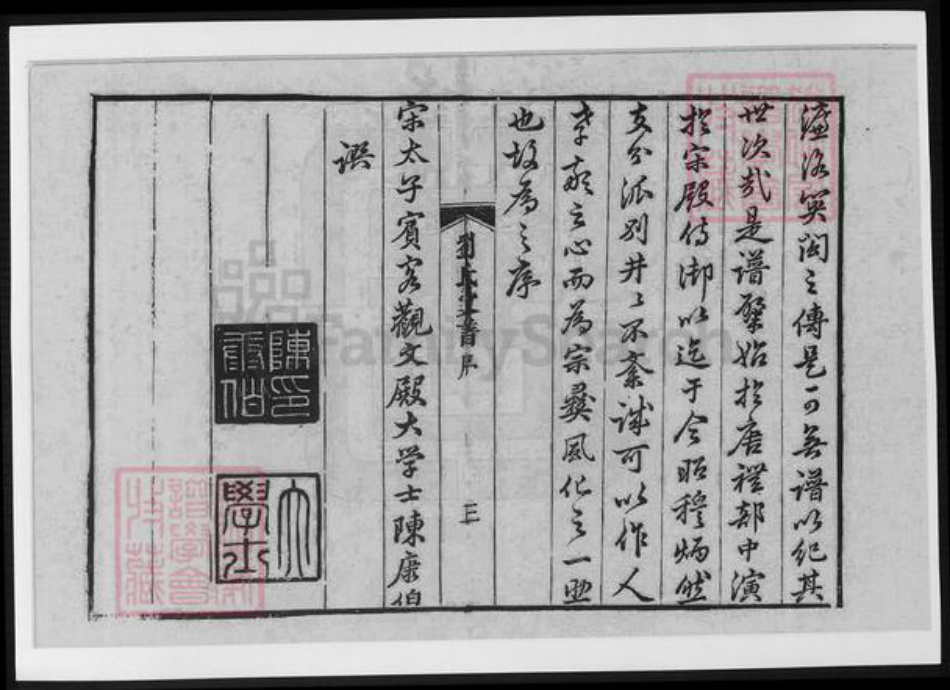 濂洛関閩之傳是不可無譜以紀其
世次哉是譜肇始於唐禮部中演
於宋殿侍御以迄于今昭穆炳然
支分派別井〻不紊誠可以作人
孝敬之心而為宗彝風化之一助
也故為之序
劉氏 書序
三
宋太子賓客觀文殿大学士陳康伯
譔
陳康伯印
大學士
FamilySearch